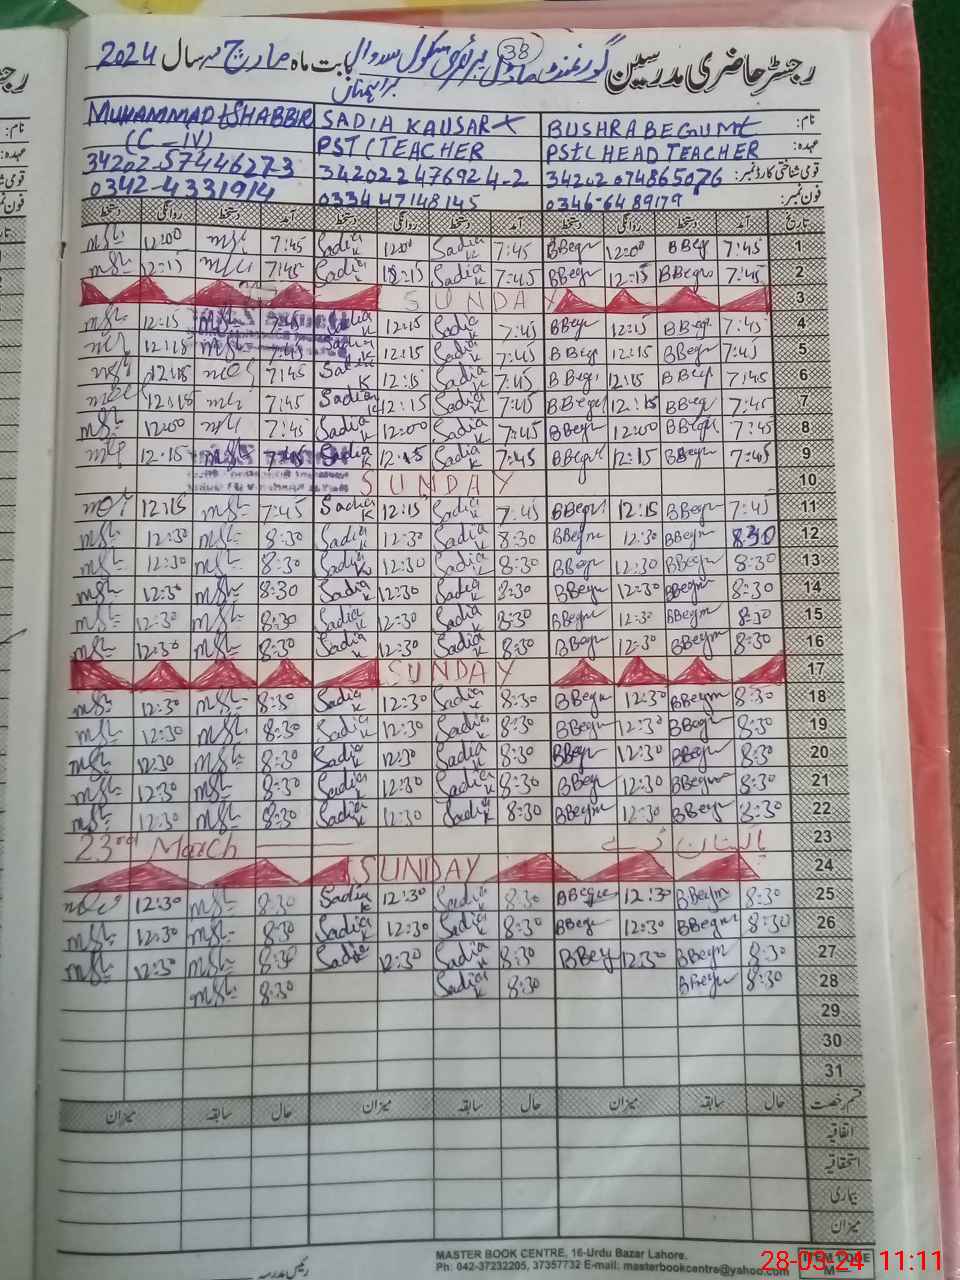 رجسٹر حاضری مدرسین گورنمنٹ ماڈل پرائمری سکول سدوال بابت ماہ مارچ سال 2024
38
نام: BUSHRA BEGUM SADIA KAUSAR MUHAMMAD SHABBIR
عہدہ: PST(HEAD TEACHER PST(TEACHER (C-IV)
قومی شناختی کارڈ نمبر: 3420220748650 342022476924-2 34202-5744627-3
فون نمبر: 0346-6489179 033447148145 0342-4331914
تاریخ آمد دستخط روانگی دستخط آمد دستخط روانگی دستخط آمد دستخط روانگی دستخط
1 7:45 BBeg 12:00 BBegn 7:45 Sadia K 12:00 Sadia K 7:45 12:00
2 7:45 BBegn 12:15 BBegn 7:45 Sadia K 12:15 Sadia K 7:45 12:15
3 SUNDAY
4 7:45 BBegn 12:15 BBegn 7:45 Sadia K 12:15 Sadia K 7:45 12:15
5 7:45 BBegn 12:15 BBegn 7:45 Sadia K 12:15 Sadia K 7:45 12:15
6 7:45 BBeg 12:15 BBeg 7:45 Sadia K 12:15 Sadia K 7:45 12:15
7 7:45 BBeg 12:15 BBegn 7:45 Sadia K 12:15 Sadia K 7:45 12:15
8 7:45 BBegn 12:00 BBegn 7:45 Sadia K 12:00 Sadia K 7:45 12:00
9 7:45 BBegn 12:15 BBegn 7:45 Sadia K 12:15 Sadia K 7:45 12:15
10 SUNDAY
11 7:45 BBegn 12:15 BBegn 7:45 Sadia K 12:15 Sadia K 7:45 12:15
12 8:30 BBegn 12:30 BBegm 8:30 Sadia K 12:30 Sadia K 8:30 12:30
13 8:30 BBegm 12:30 BBegm 8:30 Sadia K 12:30 Sadia K 8:30 12:30
14 8:30 BBegm 12:30 BBegn 8:30 Sadia K 12:30 Sadia K 8:30 12:30
15 8:30 BBegm 12:30 BBegn 8:30 Sadia K 12:30 Sadia K 8:30 12:30
16 8:30 BBegn 12:30 BBegn 8:30 Sadia K 12:30 Sadia K 8:30 12:30
17 SUNDAY
18 8:30 BBegm 12:30 BBegn 8:30 Sadia K 12:30 Sadia K 8:30 12:30
19 8:30 BBegn 12:30 BBegn 8:30 Sadia K 12:30 Sadia K 8:30 12:30
20 8:30 BBegn 12:30 BBegn 8:30 Sadia K 12:30 Sadia K 8:30 12:30
21 8:30 BBegm 12:30 BBegn 8:30 Sadia K 12:30 Sadia K 8:30 12:30
22 8:30 BBegn 12:30 BBegm 8:30 Sadia K 12:30 Sadia K 8:30 12:30
23 پاکستان ڈے 23rd March
24 SUNDAY
25 8:30 BBegm 12:30 BBegn 8:30 Sadia K 12:30 Sadia K 8:30 12:30
26 8:30 BBegm 12:30 BBegn 8:30 Sadia K 12:30 Sadia K 8:30 12:30
27 8:30 BBegn 12:30 BBeg 8:30 Sadia K 12:30 Sadia 8:30 12:30
28 8:30 BBegn 8:30 Sadia K 8:30
29
30
31
قسم رخصت حال سابقہ میزان حال سابقہ میزان حال سابقہ میزان
اتفاقیہ
استحقاقیہ
بیماری
میزان
رئیس مدرسہ
MASTER BOOK CENTRE, 16-Urdu Bazar Lahore.
Ph: 042-37232205, 37357732 E-mail: masterbookcentre@yahoo.com
ITEM CODE
28-03-24 11:11